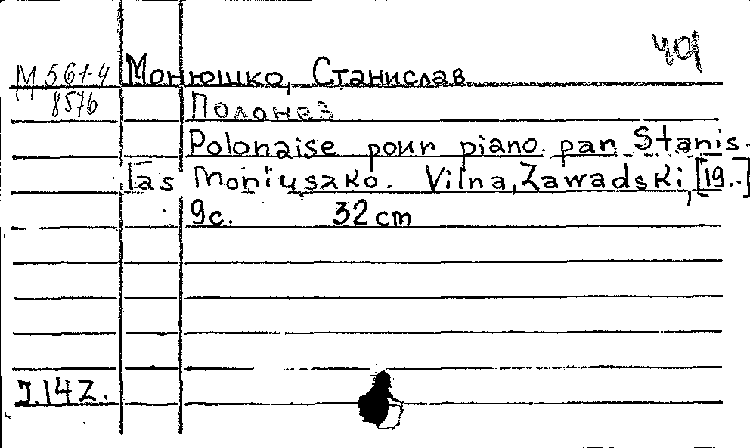 М 561-4 Монюшко, Станислав
8576 Полонез
Polonaise pour piano par Stanis-
las Moniuszko. Vilna, Zawadski, [19..]
9с. 32 cm